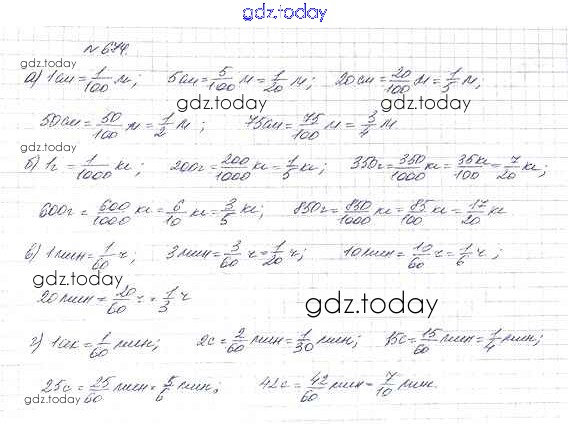 gdz.today
№ 674.
а) 1см = 1/100 м; 5см = 5/100 м = 1/20 м; 20см = 20/100 м = 1/5 м;
gdz.today gdz.today gdz.today
50см = 50/100 м = 1/2 м; 75см = 75/100 м = 3/4 м.
б) 1г = 1/1000 кг; 200г = 200/1000 кг = 1/5 кг; 350г = 350/1000 кг = 35/100 кг = 7/20 кг;
gdz.today gdz.today gdz.today
600г = 600/1000 кг = 6/10 кг = 3/5 кг; 850г = 850/1000 кг = 85/100 кг = 17/20 кг
в) 1 мин = 1/60 ч; 3 мин = 3/60 ч = 1/20 ч; 10 мин = 10/60 ч = 1/6 ч;
gdz.today
20 мин = 20/60 ч = 1/3 ч
gdz.today
г) 1сек = 1/60 мин; 2с = 2/60 мин = 1/30 мин; 15с = 15/60 мин = 1/4 мин;
25с = 25/60 мин = 5/6 мин; 42с = 42/60 мин = 7/10 мин.
gdz.today gdz.today gdz.today